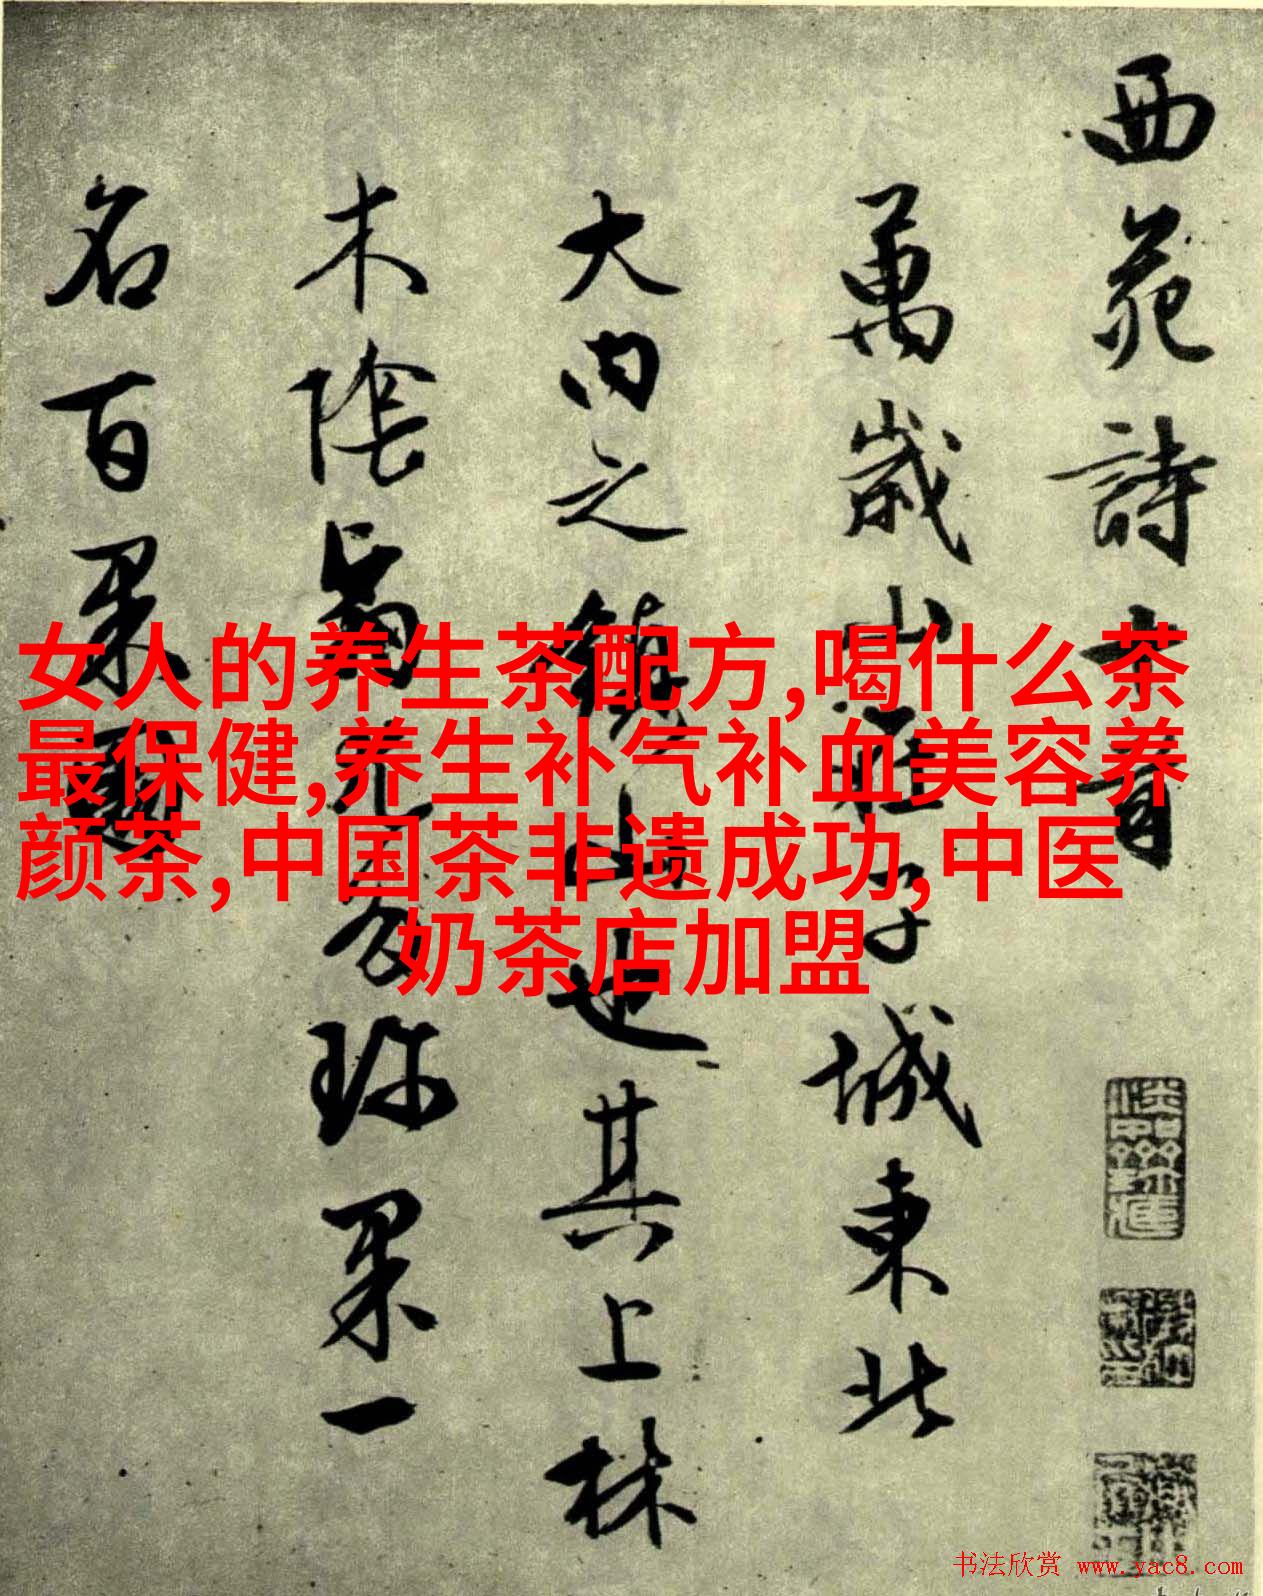 西苑詩十首
萬歲山在子城東北
大内之鎮山也其上林
木陰翳尤多珍果一
名百果園
女人的养生茶配方,喝什么茶
最保健,养生补气补血美容养
颜茶,中国茶非遗成功,中医
奶茶店加盟
书法欣赏 www.yac8.com